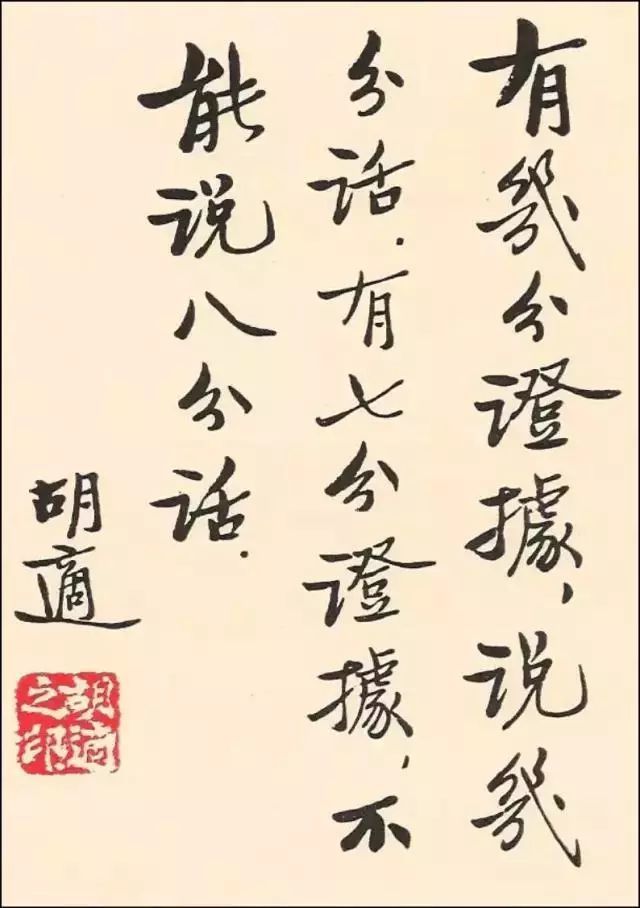 有幾分證據，说幾
分话．有七分證據，不
能说八分话．
胡適
胡適之印